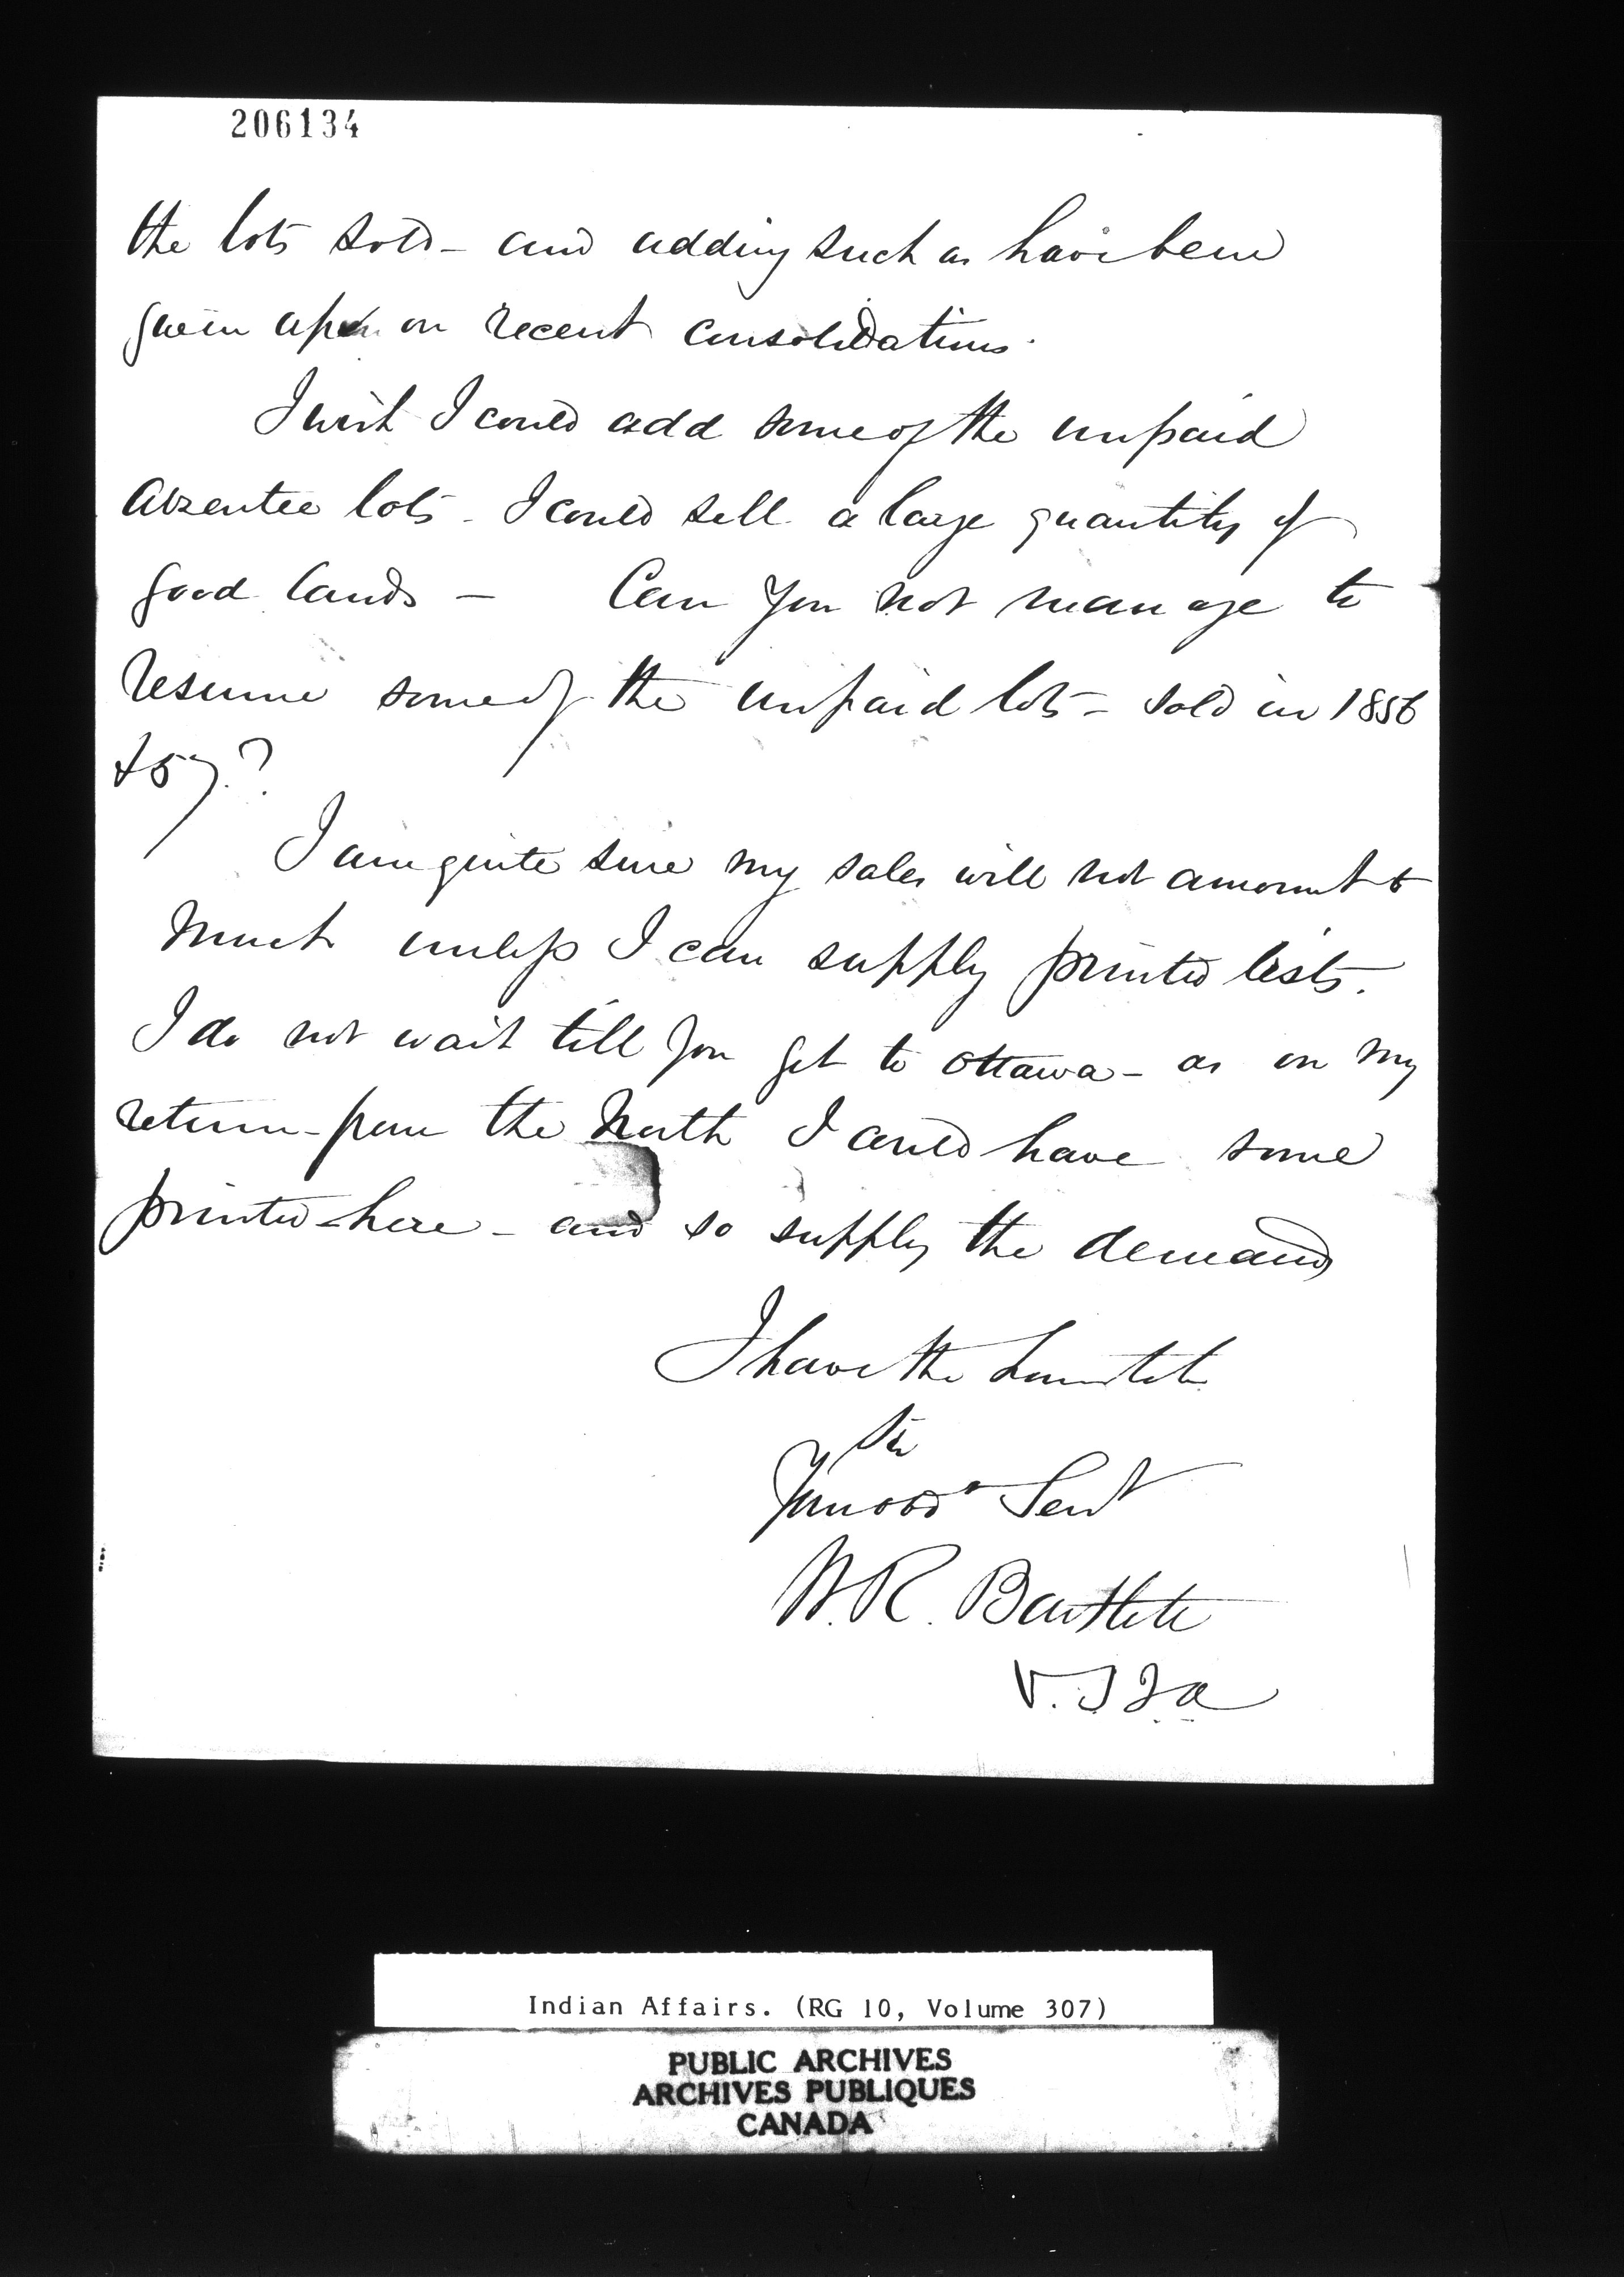 206134
the lots sold - and adding such as have been
given up on recent consolidations.
I wish I could add some of the unpaid
absentee lots - I could sell a large quantity of
good lands - Can you not manage to
resume some of the unpaid lots - sold in 1856
& 57.?
I am quite sure my sales will not amount to
much unless I can supply printed lists.
I do not wait till you get to Ottawa - as on my
return from the North I could have some
printed here - and so supply the demand
I have the honor to be
Sir
Your obdt Servt
W.R. Bartlett
V.S I a
Indian Affairs. (RG 10, Volume 307)
PUBLIC ARCHIVES
ARCHIVES PUBLIQUES
CANADA